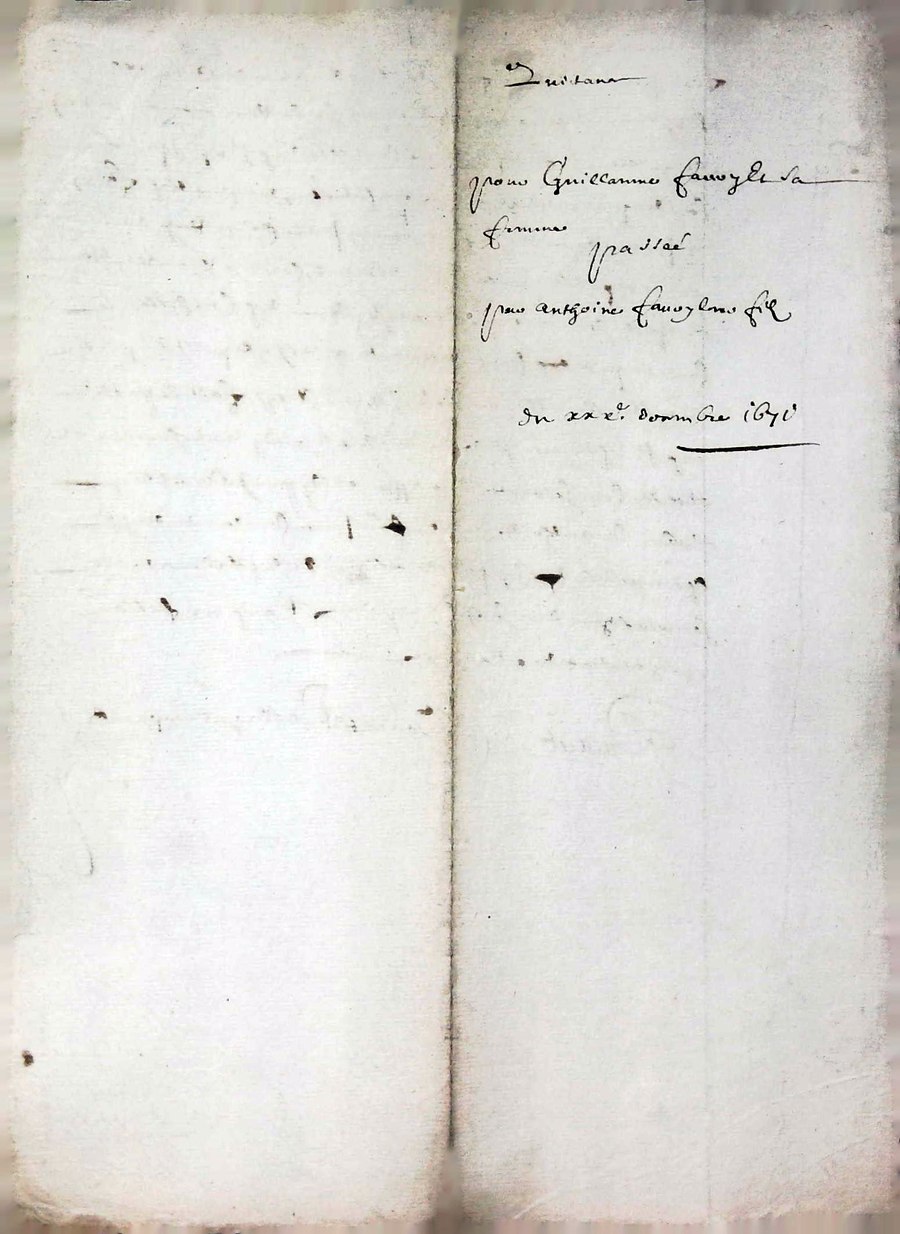 Quitance
pour Guillaume Favoy et sa
femme
passeé
par anthoine Favoy leur filz
du xxxe. decembre 1671